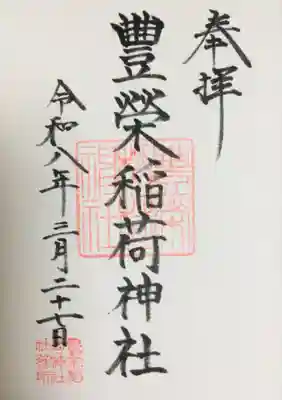 奉拝
豊榮稲荷神社
令和八年三月二十七日